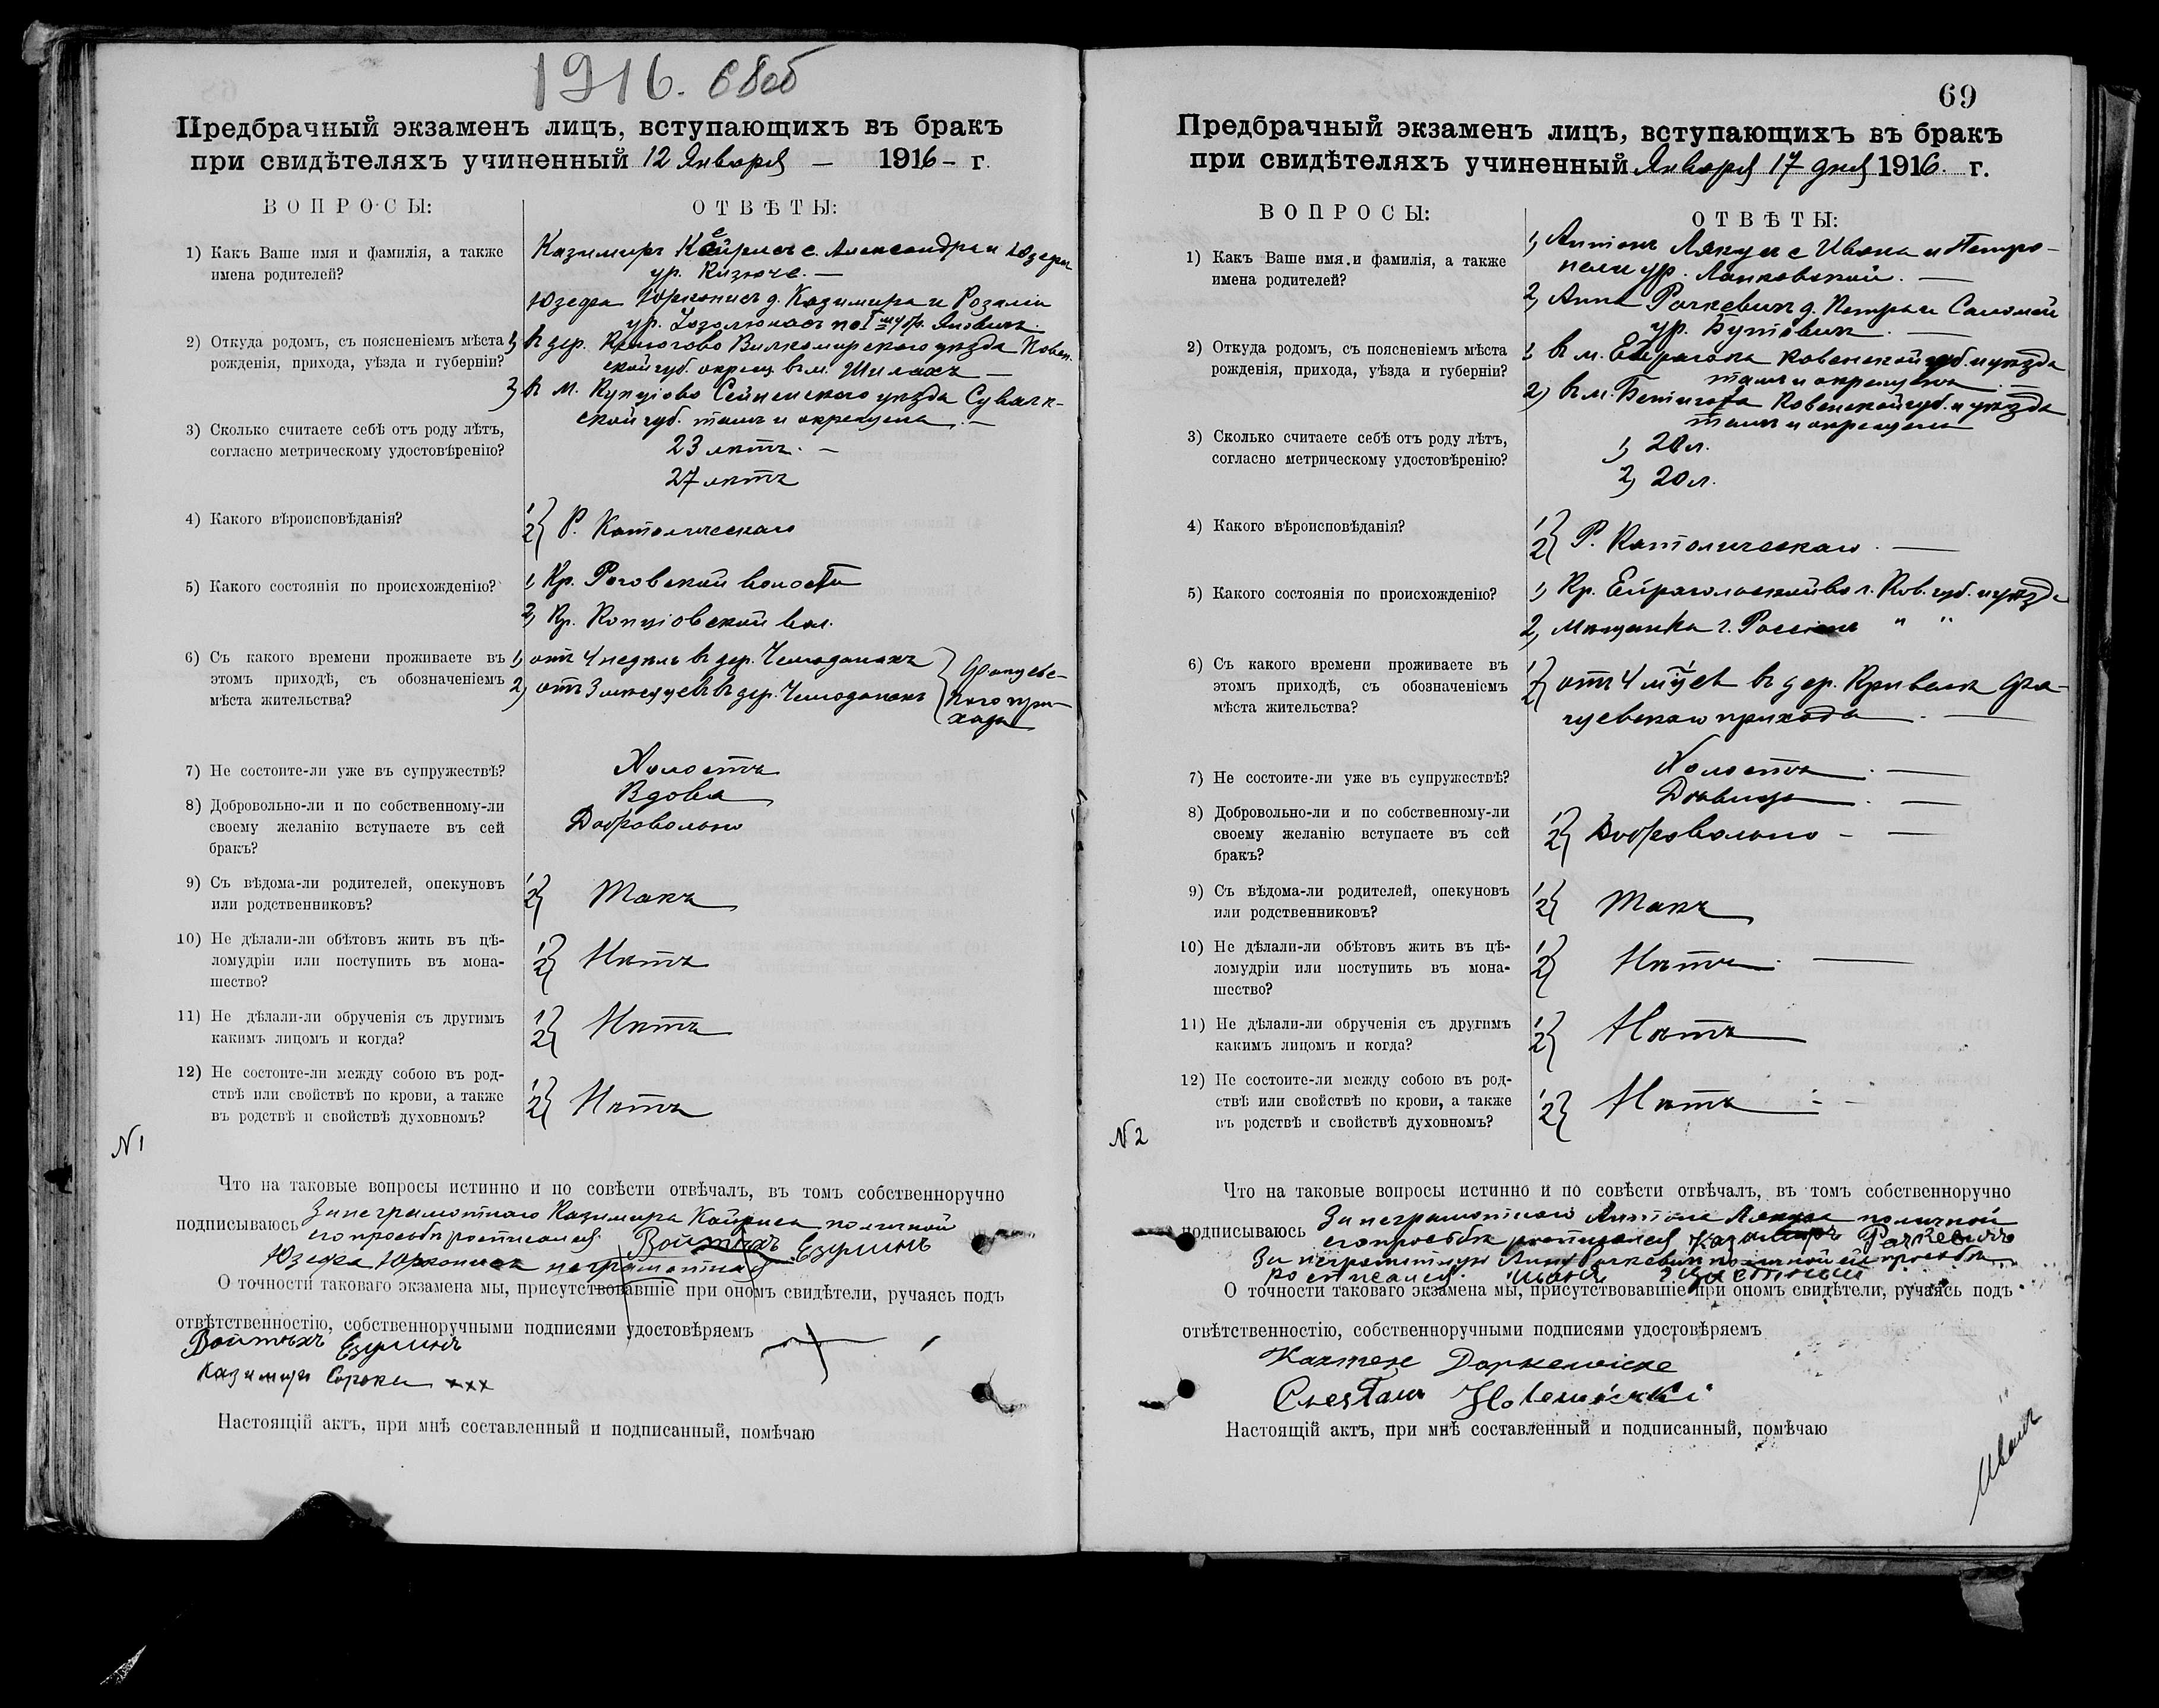 1916. 68об
Предбрачный экзаменъ лицъ, вступающихъ въ бракъ
при свидѣтеляхъ учиненный 12 Января — 1916 - г.
ВОПРОСЫ:
ОТВѢТЫ:
1) Какъ Ваше имя и фамилія, а также
имена родителей?
Казимиръ с. Александра и Юзефы
ур.
Юзефа д. Казимира и Розаліи
ур. по
2) Откуда родомъ, съ поясненіемъ мѣста
рожденія, прихода, уѣзда и губерніи?
1) въ дер. Вилкомирскаго уѣзда Ковен-
ской губ. окрещ. въ м. Шилахъ —
2) въ м. Сейненскаго уѣзда Сувалк-
ской губ. тамъ и окрещена. —
3) Сколько считаете себѣ отъ роду лѣтъ,
согласно метрическому удостовѣренію?
23 лѣтъ. —
27 лѣтъ
4) Какого вѣроисповѣданія?
1) 2) Р. Католическаго
5) Какого состоянія по происхожденію?
1) Кр. Роговской волости
2) Кр. Копціовской вол.
6) Съ какого времени проживаете въ
этомъ приходѣ, съ обозначеніемъ
мѣста жительства?
1) отъ 4 недѣль въ дер.
2) отъ 3 мѣсяцевъ въ дер.
прихода
7) Не состоите-ли уже въ супружествѣ?
Холостъ
Вдова
8) Добровольно-ли и по собственному-ли
своему желанію вступаете въ сей
бракъ?
Добровольно
9) Съ вѣдома-ли родителей, опекуновъ
или родственниковъ?
1) 2) Такъ
10) Не дѣлали-ли обѣтовъ жить въ цѣ-
ломудріи или поступить въ мона-
шество?
1) 2) Нѣтъ
11) Не дѣлали-ли обрученія съ другимъ
какимъ лицомъ и когда?
1) 2) Нѣтъ
12) Не состоите-ли между собою въ род-
ствѣ или свойствѣ по крови, а также
въ родствѣ и свойствѣ духовномъ?
1) 2) Нѣтъ
N 1
Что на таковые вопросы истинно и по совѣсти отвѣчалъ, въ томъ собственноручно
подписываюсь За неграмотнаго Казимира по личной
его просьбѣ росписался Войтѣхъ
Юзефа неграмотная
О точности таковаго экзамена мы, присутствовавшіе при ономъ свидѣтели, ручаясь подъ
отвѣтственностію, собственноручными подписями удостовѣряемъ
Войтѣхъ
Казимиръ Сорока xxx
Настоящій актъ, при мнѣ составленный и подписанный, помѣчаю
69
Предбрачный экзаменъ лицъ, вступающихъ въ бракъ
при свидѣтеляхъ учиненный Января 17 дня 1916. г.
ВОПРОСЫ:
ОТВѢТЫ:
1) Какъ Ваше имя и фамилія, а также
имена родителей?
1) Антонъ с. Ивана и Петро-
нели ур. Янковской. —
2) Анна Рачкевичъ д. Петра и Саломеи
ур. Бутовичъ. —
2) Откуда родомъ, съ поясненіемъ мѣста
рожденія, прихода, уѣзда и губерніи?
1) въ м. Ейрагола Ковенской губ. и уѣзда
тамъ и окрещенъ. —
2) въ м. Бетигола Ковенской губ. и уѣзда
тамъ и окрещена
3) Сколько считаете себѣ отъ роду лѣтъ,
согласно метрическому удостовѣренію?
1) 20 л.
2) 20 л.
4) Какого вѣроисповѣданія?
1) 2) Р. Католическаго. —
5) Какого состоянія по происхожденію?
1) Кр. Ейрагольской вол. Ков. губ. и уѣзда
2) Мѣщанка г. Россіенъ " "
6) Съ какого времени проживаете въ
этомъ приходѣ, съ обозначеніемъ
мѣста жительства?
1) 2) отъ 4 м-цевъ въ дер.
прихода. —
7) Не состоите-ли уже въ супружествѣ?
Холостъ. —
Дѣвица. —
8) Добровольно-ли и по собственному-ли
своему желанію вступаете въ сей
бракъ?
1) 2) Добровольно - —
9) Съ вѣдома-ли родителей, опекуновъ
или родственниковъ?
1) 2) Такъ
10) Не дѣлали-ли обѣтовъ жить въ цѣ-
ломудріи или поступить въ мона-
шество?
1) 2) Нѣтъ. —
11) Не дѣлали-ли обрученія съ другимъ
какимъ лицомъ и когда?
1) 2) Нѣтъ
12) Не состоите-ли между собою въ род-
ствѣ или свойствѣ по крови, а также
въ родствѣ и свойствѣ духовномъ?
1) 2) Нѣтъ
N 2
Что на таковые вопросы истинно и по совѣсти отвѣчалъ, въ томъ собственноручно
подписываюсь За неграмотнаго Антона по личной
его просьбѣ росписался Казимиръ Рачкевичъ
За неграмотную Анну Рачкевичъ по личной ей просьбѣ
росписался
О точности таковаго экзамена мы, присутствовавшіе при ономъ свидѣтели, ручаясь подъ
отвѣтственностію, собственноручными подписями удостовѣряемъ
Настоящій актъ, при мнѣ составленный и подписанный, помѣчаю